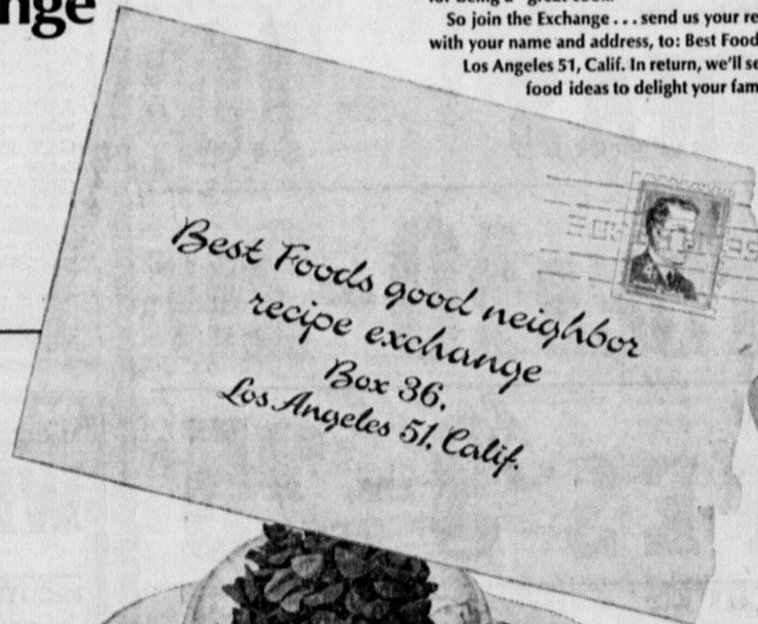 nge
So join the Exchange . . . send us your re
with your name and address, to: Best Food
Los Angeles 51, Calif. In return, we'll se
food ideas to delight your fam
Best Foods good neighbor
recipe exchange
Box 36,
Los Angeles 51, Calif.